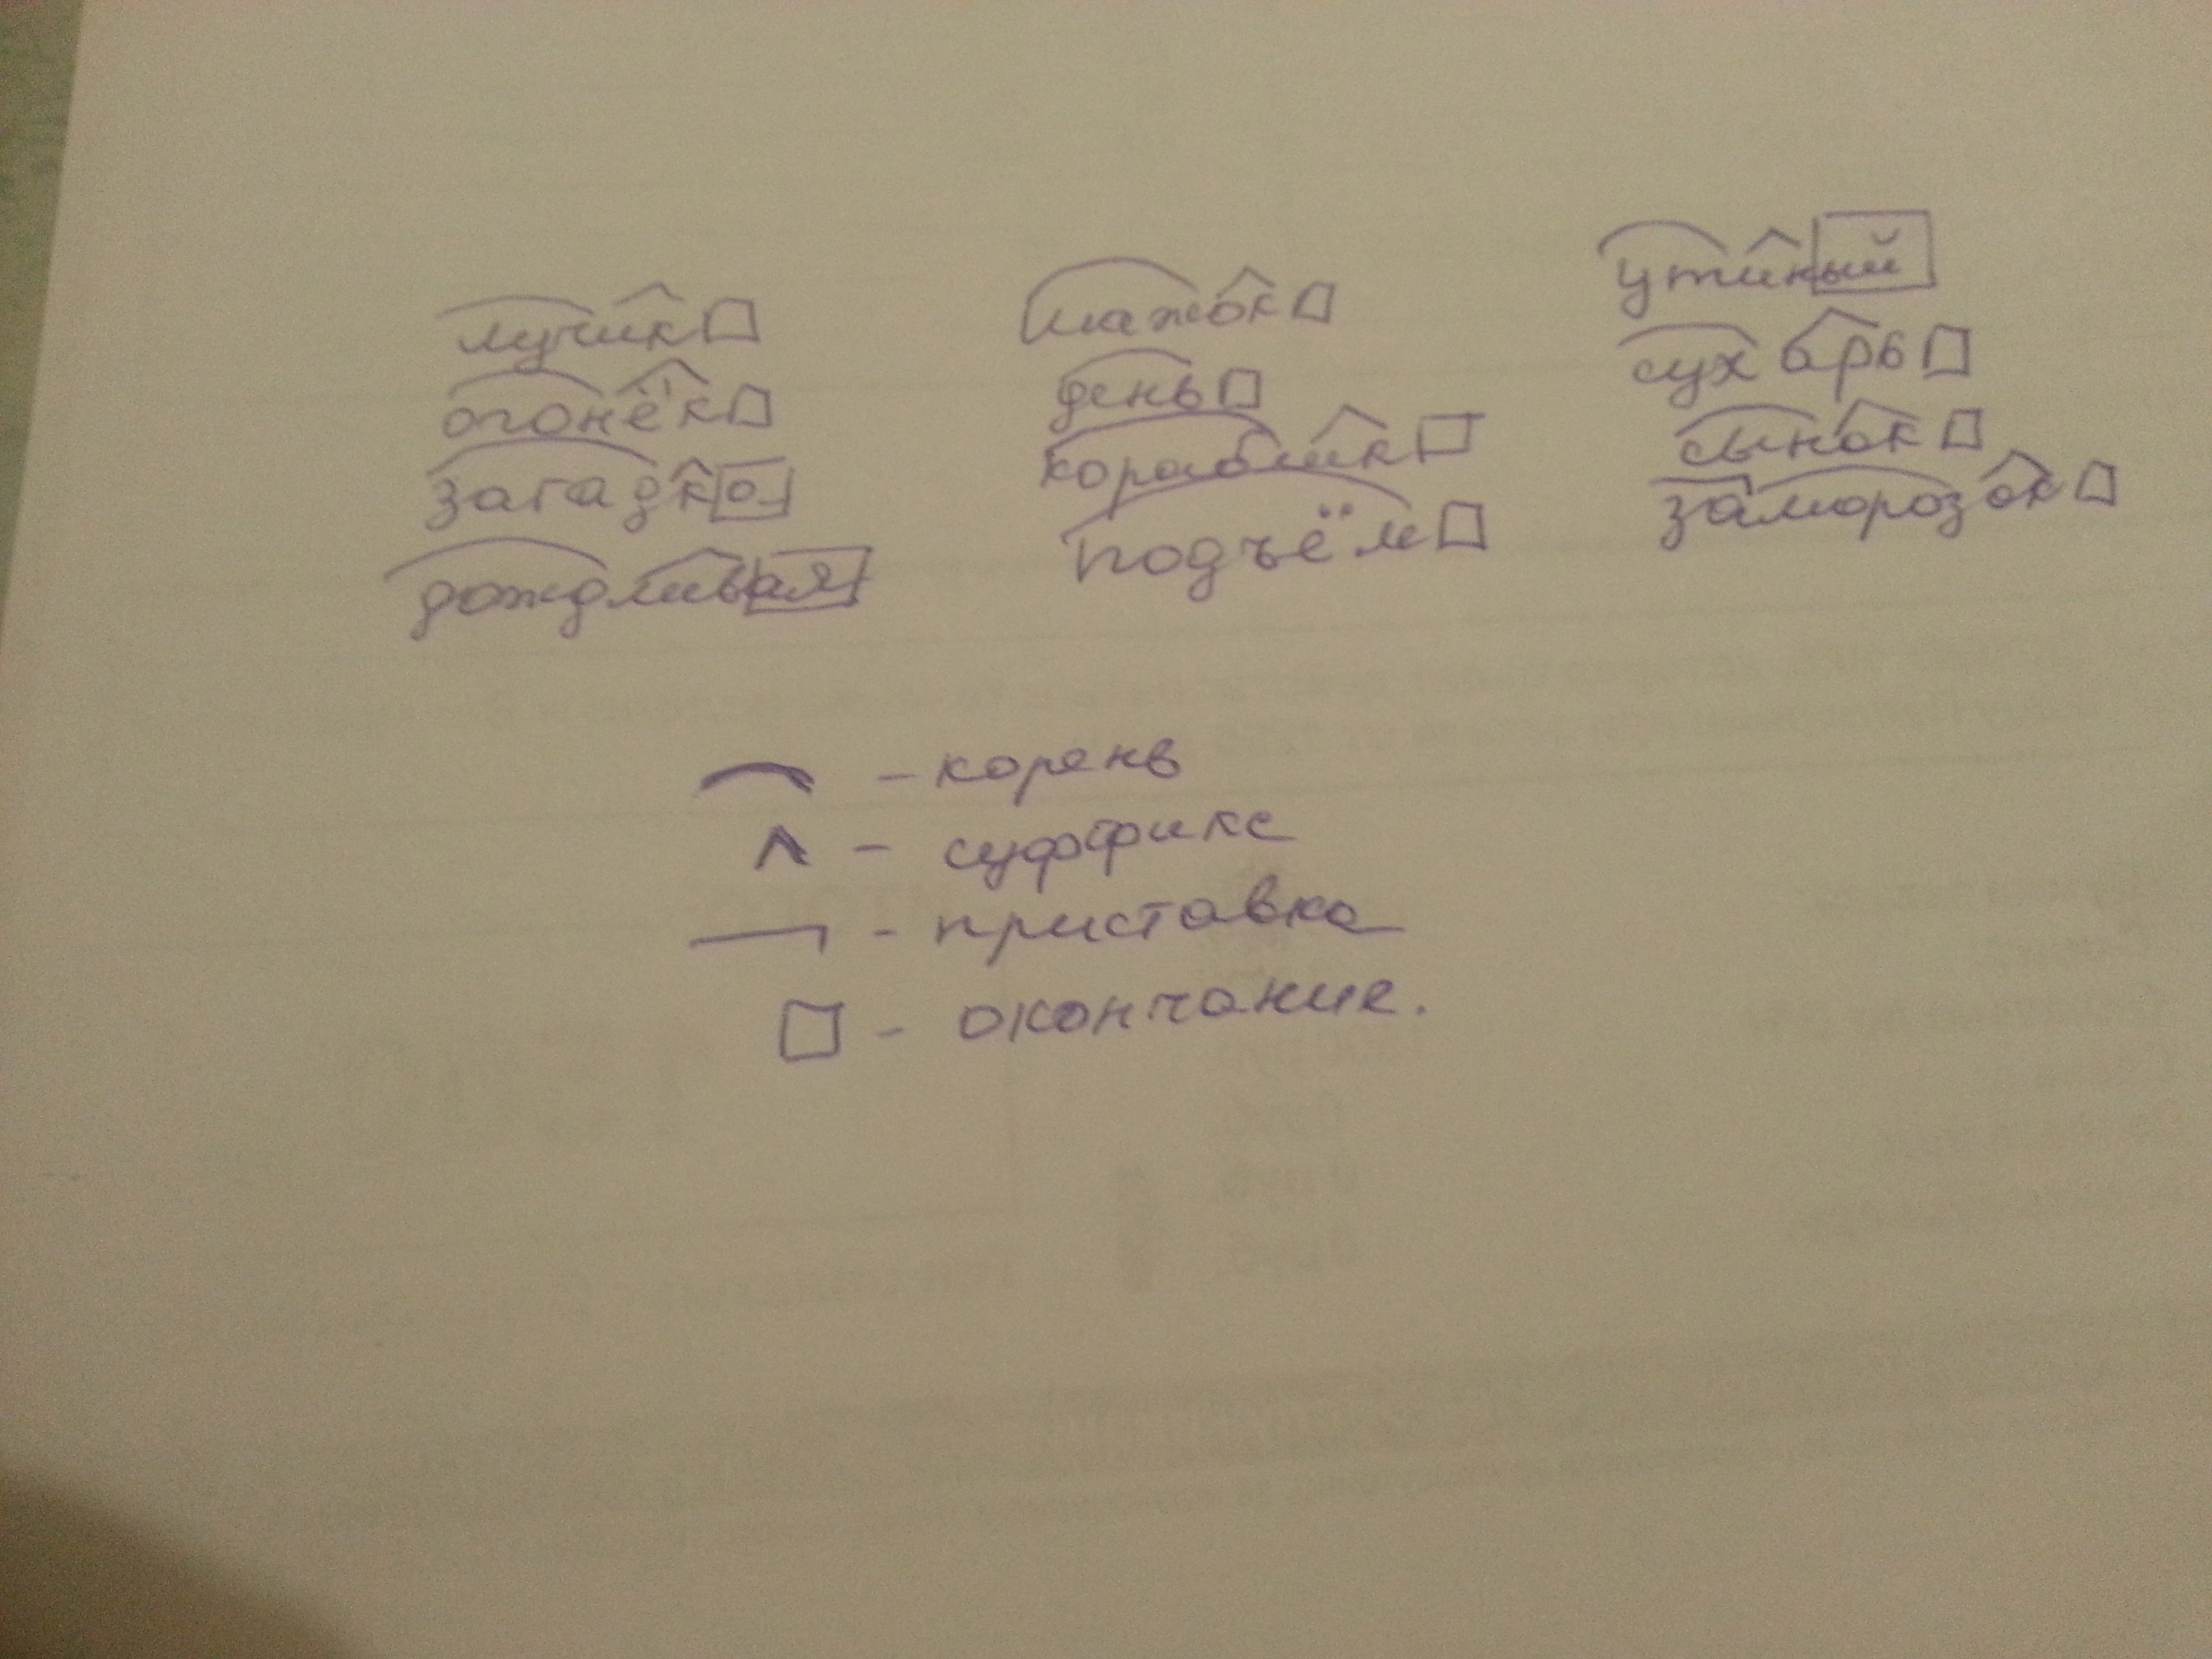 лучик шажок утиный
огонёк день сухарь
загадка кораблик сынок
дождливая подъём заморозок
– корень
– суффикс
– приставка
– окончание.